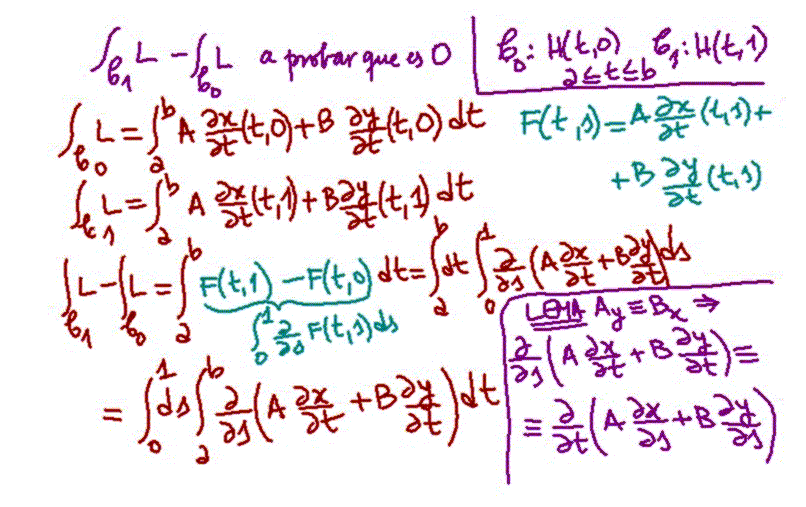 ∫_{𝒞₁} L − ∫_{𝒞₀} L a probar que es 0
𝒞₀: H(t,0) 𝒞₁: H(t,1)
a ≤ t ≤ b
∫_{𝒞₀} L = ∫_a^b A ∂x/∂t (t,0) + B ∂y/∂t (t,0) dt
F(t,s) = A ∂x/∂t (t,s) +
+ B ∂y/∂t (t,s)
∫_{𝒞₁} L = ∫_a^b A ∂x/∂t (t,1) + B ∂y/∂t (t,1) dt
∫_{𝒞₁} L − ∫_{𝒞₀} L = ∫_a^b F(t,1) − F(t,0) dt = ∫_a^b dt ∫_0^1 ∂/∂s (A ∂x/∂t + B ∂y/∂t) ds
∫_0^1 ∂/∂s F(t,s) ds
= ∫_0^1 ds ∫_a^b ∂/∂s (A ∂x/∂t + B ∂y/∂t) dt
LEMA A_y ≡ B_x ⇒
∂/∂s (A ∂x/∂t + B ∂y/∂t) ≡
≡ ∂/∂t (A ∂x/∂s + B ∂y/∂s)